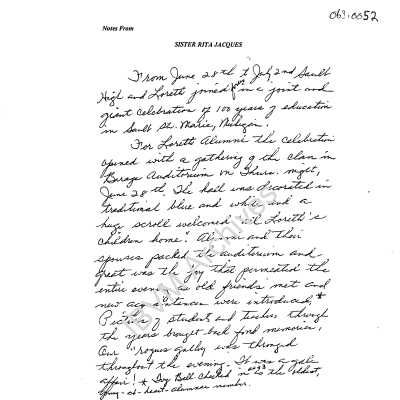 063-0052
Notes From
SISTER RITA JACQUES
From June 28th to July 2nd Sault
High and Loreth joined in a joint and
giant celebration of 100 years of education
in Sault Ste. Marie, Michigan.
For Loreth Alumni the celebration
opened with a gathering of the clan in
Baraga Auditorium on Thurs. night,
June 28th. The hall was decorated in
traditional blue and white and a
huge scroll welcomed "all Loreth's
children home". Alumni and their
spouses packed the auditorium and
great was the joy that permeated the
entire evening as old friends met and
new acquaintances were introduced.*
Pictures of students and teachers through
the years brought back fond memories.
Our "rogues galley" was thronged
throughout the evening. It was a gala
affair! * Ivy Bell Chested in as the oldest,
young-at-heart alumnae member.
IBVM Archives